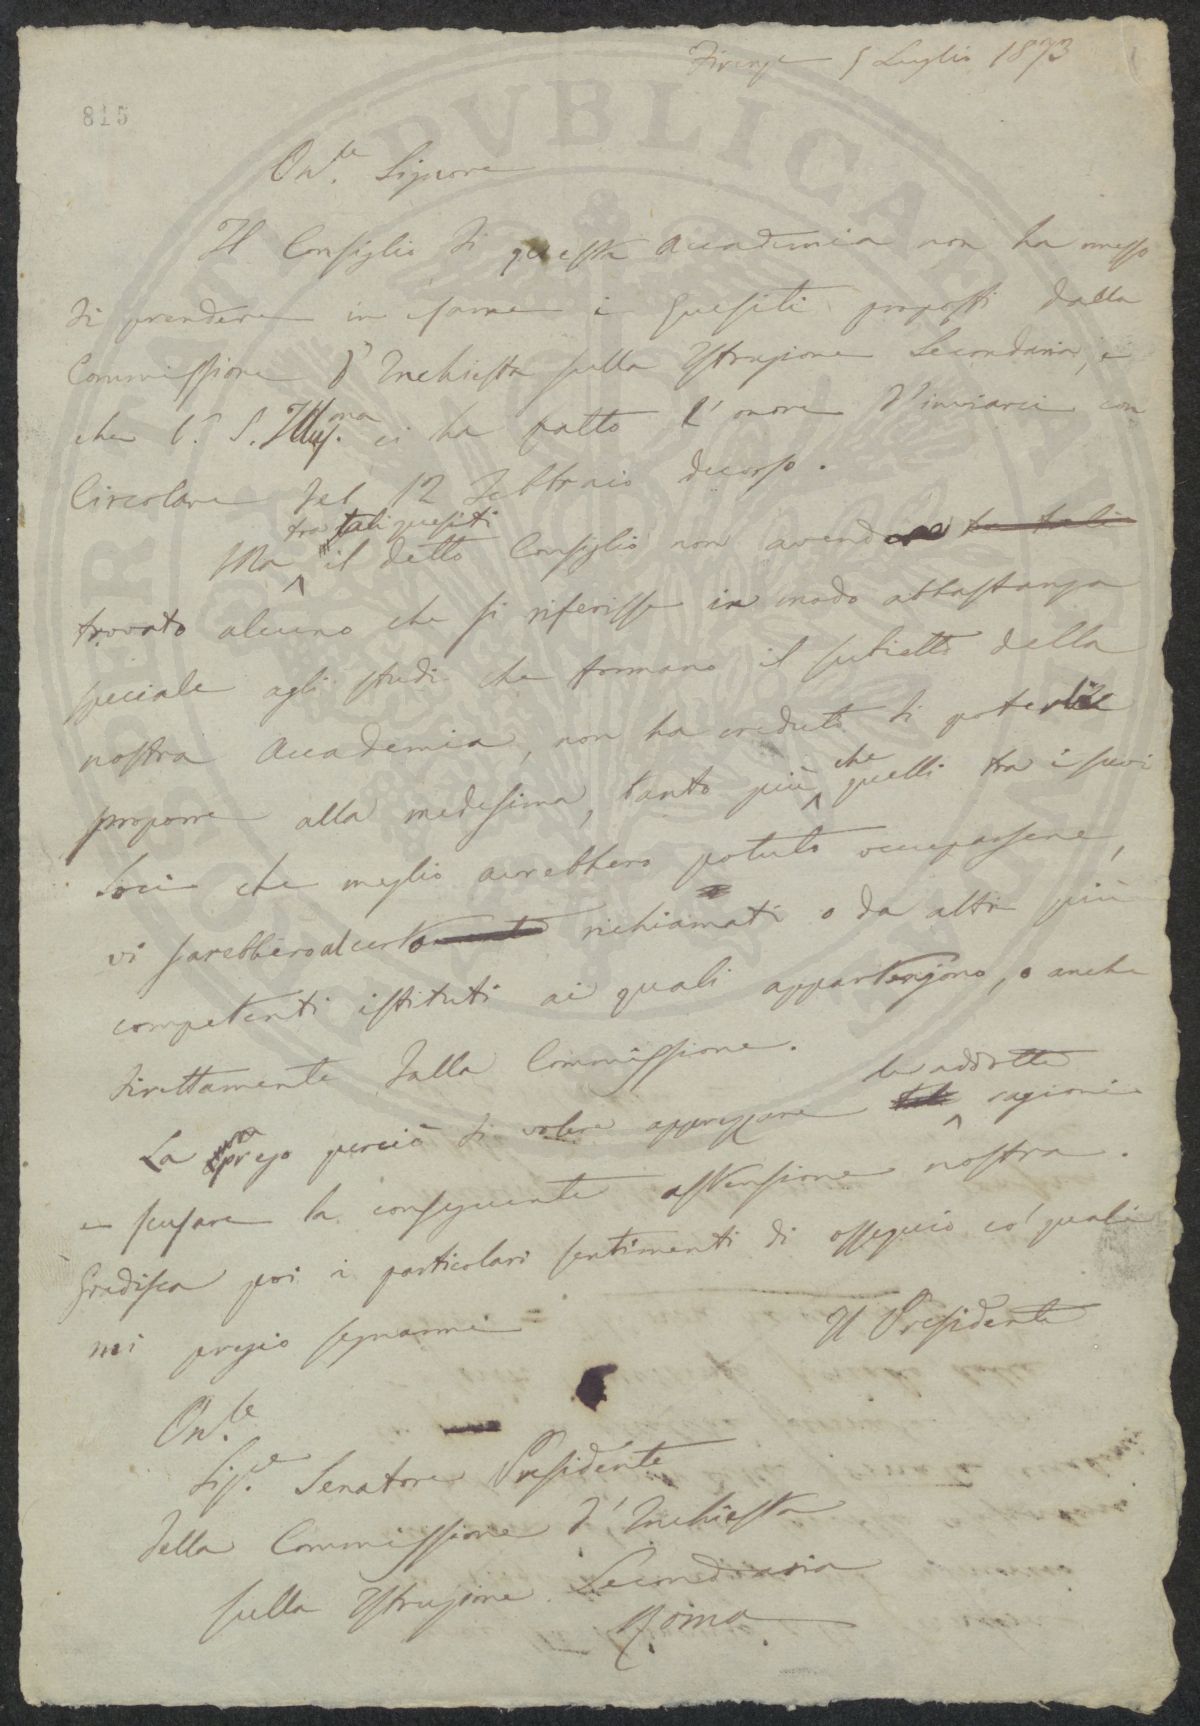 Firenze 5 Luglio 1873
815
On.le Signore
Il Consiglio di questa Accademia non ha omesso
di prendere in esame i quesiti proposti dalla
Commissione d'Inchiesta sulla Istruzione Secondaria, e
che l. S. Illus.ma ci ha fatto l'onore d'inviarci con
Circolare del 12 Febbraio decorso.
tra tali quesiti
Ma il detto Consiglio non avendo tra tali
trovato alcuno che si riferisse in modo abbastanza
speciale agli studi che formano il subietto della
nostra Accademia, non ha creduto di poterli
proporre alla medesima, tanto più che quelli tra i suoi
Soci che meglio avrebbero potuto occuparsene,
vi sarebbero al certo richiamati o da altri più
competenti istituti ai quali appartengono, o anche
direttamente dalla Commissione.
La prego perciò di volere apprezzare le addotte ragioni
e scusare la conseguente astensione nostra.
Gradisca poi i particolari sentimenti di ossequio co' quali
mi pregio segnarmi
Il Presidente
On.le
Sig.re Senatore Presidente
della Commissione d'Inchiesta
sulla Istruzione Secondaria
Roma
SPQR
PVBLICA